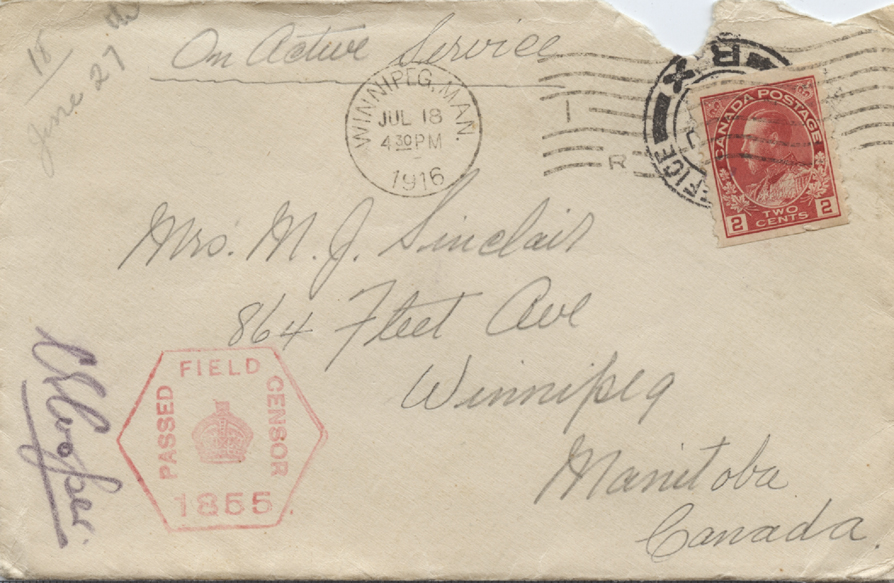 18
June 27th
On Active Service
WINNIPEG, MAN.
JUL 18
4 30 PM
1916
I
R
CANADA POSTAGE
2 TWO CENTS 2
Mrs. M. J. Sinclair
864 Fleet Ave
Winnipeg
Manitoba
Canada.
PASSED FIELD CENSOR
1855